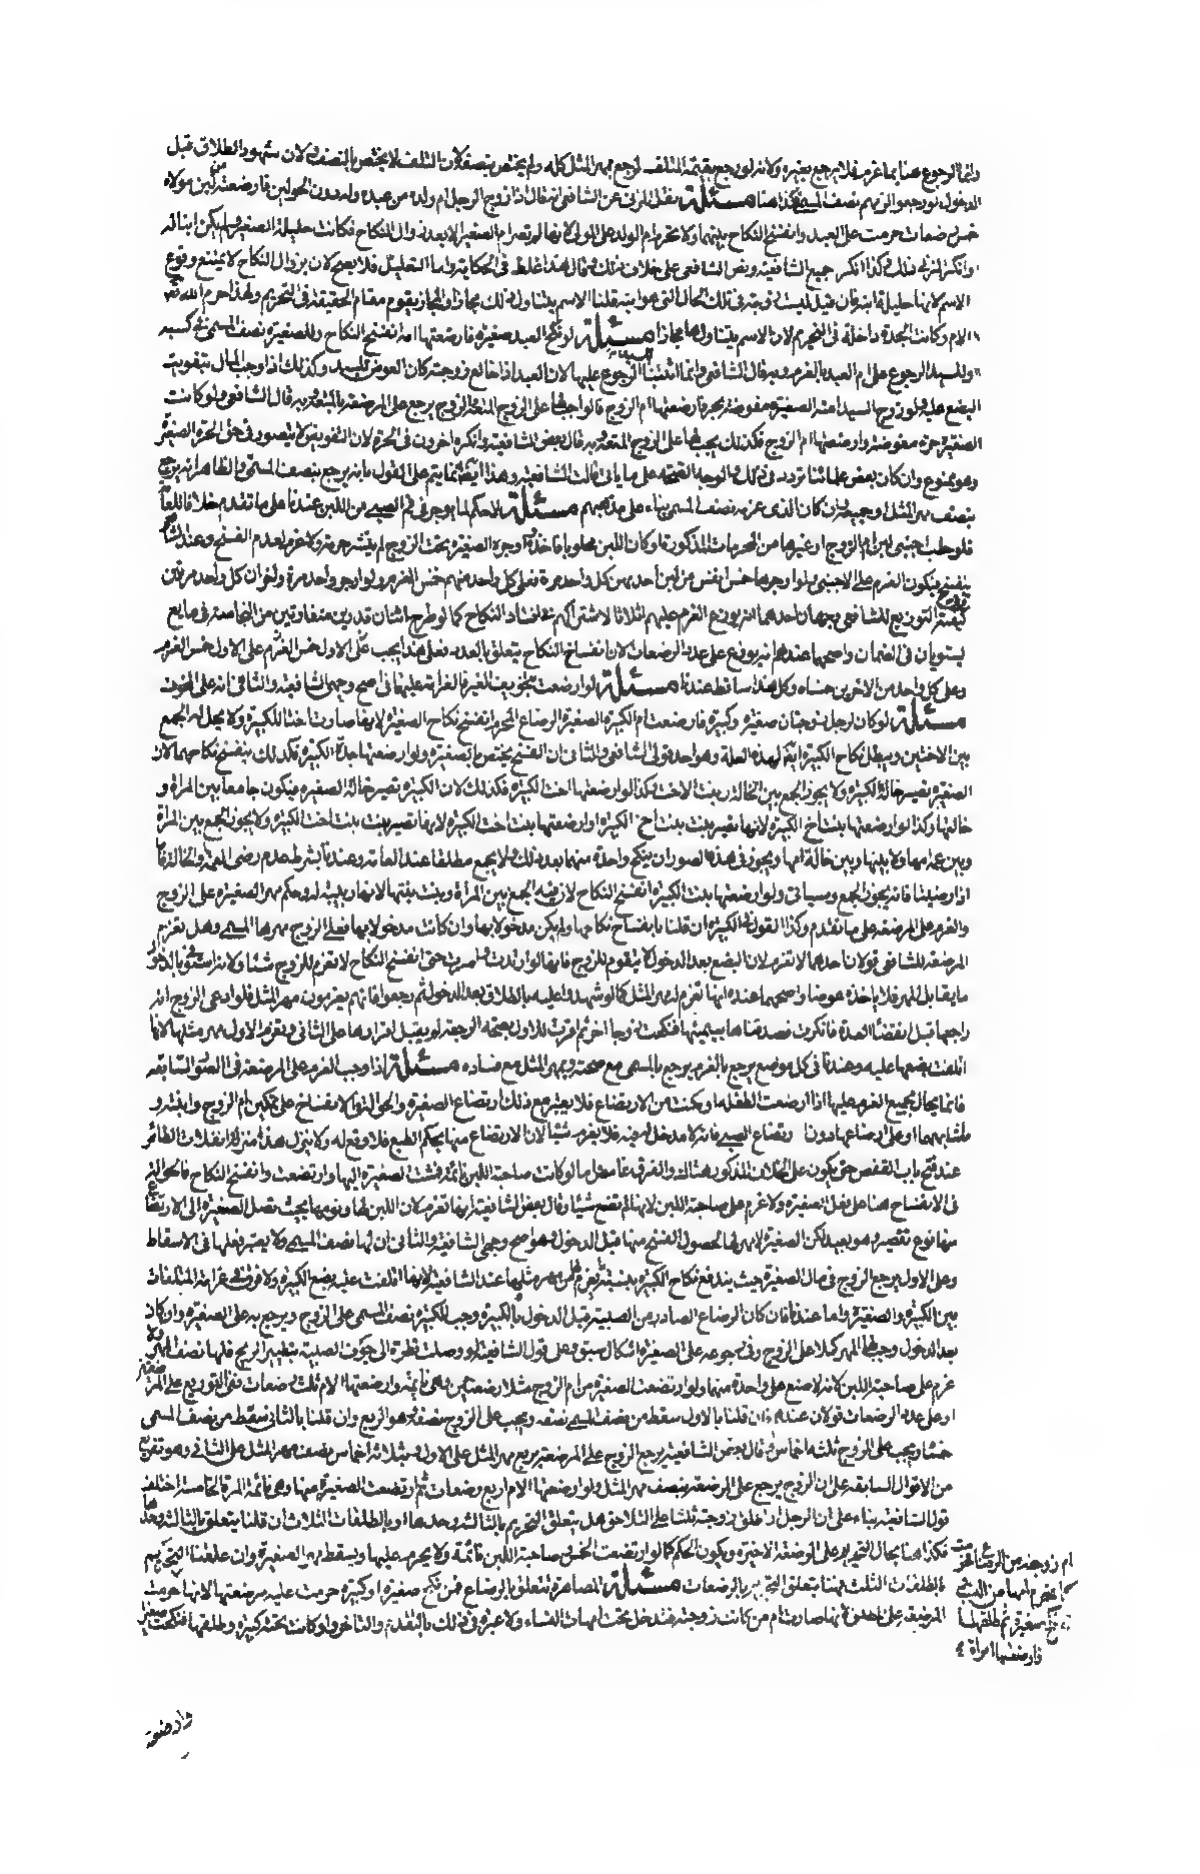 وانما الرجوع هنا بما غرم فلا يرجع بغيره ولانه لو رجع بقيمة المتلف لرجع بمهر المثل كله ولم يختص بنصفه لان التلف لا يختص بالنصف ولان شهود الطلاق قبل
الدخول لو رجعوا لزمهم نصف المسمى وكذا هنا مسئلة نقل المزنى عن الشافعى انه قال اذا زوج الرجل ام ولده من عبده وله دون الحولين فارضعته من لبن مولاه
خمس رضعات حرمت على العبد وانفسخ النكاح بينهما ولا تحرم ام الولد على المولى لانها لم تصر ام الصغير الا بعد زوال النكاح فكانت حليلة الصغير ولم يكن ابنا له
وانكر المزنى ذلك وكذا انكر جميع الشافعية ونص الشافعى على خلاف ذلك وقال هذا غلط فى الحكاية واما التعليل فلا يصح لان زوال النكاح لا يمنع وقوع
الاسم لانها حليلة ابنه فان قيل ليست زوجة فى تلك الحال التى هو ابنه قلنا الاسم يتناول ذلك مجازا والمجاز يقوم مقام الحقيقة فى التحريم ولهذا حرم الله تعالى
الام وكانت الجدة داخلة فى التحريم لان الاسم يتناولها مجازا مسئلة لو نكح العبد صغيرة فارضعتها امه انفسخ النكاح وللصغيرة نصف المسمى فى كسبه
وللسيد الرجوع على ام العبد بالغرم وبه قال الشافعى وانما اثبتنا للسيد الرجوع عليها لان العبد اذا خالع زوجته كان العوض للسيد وكذلك اذا وجب المال بتفويت
البضع عليه ولو زوج السيد امته الصغيرة مفوضة بحر فارضعتها ام الزوج فالواجب لها على الزوج المتعة والزوج يرجع على المرضعة بالمتعة وبه قال الشافعى ولو كانت
الصغيرة حرة مفوضة وارضعتها ام الزوج فكذلك يجب لها على الزوج المتعة وبه قال بعض الشافعية وانكره اخرون فى الحرة لان التفويض لا يتصور فى حق الحرة الصغيرة
وهو ممنوع وان كان بعض علمائنا تردد فى ذلك والوجه الصحة على ما ياتى قالت الشافعية وهذا ايضا انما يتم على القول بانه يرجع بنصف المسمى والظاهر انه يرجع
بنصف مهر المثل وجميعه ان كان الذى غرمه نصف المسمى بناء على مذهبهم مسئلة لا حكم لما يوجر فى فم الصبى من اللبن عندنا على ما تقدم خلافا للعامة
فلو حلب اجنبى لبن ام الزوج او غيرها من المحرمات المذكورة او كان اللبن محلوبا فاخذه واوجره الصغيرة تحت الزوج لم ينشر حرمة ولا غرم لعدم الفسخ وعند الشافعى
ينفسخ ويكون الغرم على الاجنبى ولو اوجرها خمس انفس من لبن احدهن كل واحد مرة فعلى كل واحد منهم خمس الغرم ولو اوجر واحد مرة واخران كل واحد مرتين
كيفية التوزيع للشافعى وجهان احدهما انه يوزع الغرم عليهم اثلاثا لاشتراكهم فى افساد النكاح كما لو طرح اثنان قدرين متفاوتين من النجاسة فى مايع
يستويان فى الضمان واصحهما عندهم انه يوزع على عدد الرضعات لان انفساخ النكاح يتعلق بالعدد فعلى هذا يجب على الاول خمس الغرم وعلى الاول خمس الغرم
وعلى كل واحد من الاخرين خمساه وكل هذا ساقط عندنا مسئلة لو ارضعت بتخويف الغير فالغرامة عليها فى اصح وجهى الشافعية والثانى انه على المخوف
مسئلة لو كان لرجل زوجتان صغيرة وكبيرة فارضعت ام الكبيرة الصغيرة الرضاع المحرم انفسخ نكاح الصغيرة لانها صارت اختا للكبيرة ولا يحل له الجمع
بين الاختين ويبطل نكاح الكبيرة ايضا لهذه العلة وهو احد قولى الشافعى والثانى ان الفسخ يختص بالصغيرة ولو ارضعتها جدة الكبيرة فكذلك ينفسخ نكاحهما لان
الصغيرة تصير خالة الكبيرة ولا يجوز الجمع بين الخالة وبنت الاخت وكذا لو ارضعتها اخت الكبيرة فكذلك لان الكبيرة تصير خالة الصغيرة فيكون جامعا بين المراة و
خالتها وكذا لو ارضعتها بنت اخ الكبيرة لانها تصير بنت بنت اخ الكبيرة او ارضعتها بنت اخت الكبيرة لانها تصير بنت بنت اخت الكبيرة ولا يجوز الجمع بين المراة
وبين عمة امها ولا بينها وبين خالة امها ويجوز فى هذه الصور ان ينكح واحدة منهما بعد ذلك ولا يجمع مطلقا عند العامة وعندنا بشرط عدم رضى العمة والخالة فاما
اذا رضيتا فانه يجوز الجمع وسياتى ولو ارضعتها بنت الكبيرة انفسخ النكاح لان فيه الجمع بين المراة وبنت بنتها لانها ربيبة له وحكم مهر الصغيرة على الزوج
والغرم على المرضعة على ما تقدم وكذا القول فى الكبيرة ان قلنا بانفساخ نكاحها ولم يكن مدخولا بها وان كانت مدخولا بها فعلى الزوج مهرها المسمى وهل تغرم
المرضعة للشافعى قولان احدهما لا تغرم لان البضع بعد الدخول لا يقوم للزوج فانها لو ارتدت واصرت حتى انفسخ النكاح لا تغرم للزوج شيئا ولانه استوفى بالدخول
ما يقابل المهر فلا ياخذه عوضا واصحهما عنده انها تغرم له مهر المثل كما لو شهدوا عليه بالطلاق بعد الدخول ثم رجعوا فانهم يغرمون مهر المثل فلو ادعى الزوج انه
راجعها قبل انقضاء العدة فانكرت فصدقناها بيمينها فنكحت زوجا اخر ثم اقرت للاول بصحة الرجعة لم يقبل اقرارها على الثانى وتغرم للاول مهر مثلها لانها
اتلفت بضعها عليه وعندنا فى كل موضع يرجع بالغرم يرجع بالمسمى مع صحته وبمهر المثل مع فساده مسئلة اذا وجب الغرم على المرضعة فى الصور السابقة
فانما يحال بجميع الغرم عليها اذا ارضعت الطفلة او مكنت من الارتضاع فلا يعتبر مع ذلك ارتضاع الصغيرة والحق الذى الانفساخ على تمكين ام الزوج وابنته و
ما شابههما او على ارضاعها دون ارتضاع الصبى فانه لا مدخل له فيه فلا يغرم شيئا لان الارتضاع منها بحكم الطبع فلا وقع له ولا ينزل هذا منزلة انفلات الطائر
عند فتح باب القفص حتى يكون على الخلاف المذكور هناك والفرق غامض اما لو كانت صاحبة اللبن نائمة فدبت الصغيرة اليها وارتضعت وانفسخ النكاح فالحوالة
فى الانفساخ هنا على فعل الصغيرة ولا غرم على صاحبة اللبن لانها لم تصنع شيئا وقال بعض الشافعية انها تغرم لان اللبن لها ونومها بحيث تصل الصغيرة الى الارتضاع
منها نوع تقصير وهو بعيد لكن الصغيرة لا مهر لها لحصول الفسخ منها قبل الدخول وهو اصح وجهى الشافعية والثانى ان لها نصف المسمى ولا يعتبر فعلها فى الاسقاط
وعلى الاول يرجع الزوج فى مال الصغيرة حيث يندفع نكاح الكبيرة بنسبة ما غرم لها من مهر مثلها عند الشافعية لانها اتلفت عليه بضع الكبيرة ولا فرق فى غرامة المتلفات
بين الكبيرة والصغيرة واما عندنا فان كان الرضاع الصادر من الصبية قبل الدخول بالكبيرة وجب للكبيرة نصف المسمى على الزوج ويرجع به على الصغيرة وان كان
بعد الدخول وجب لها المهر كملا على الزوج وفى رجوعه على الصغيرة اشكال سبق وعلى قول الشافعية لو وصلت قطرة الى جوف الصبية بتطيير الريح فلها نصف المهر ولا
غرم على صاحبة اللبن لانه لا صنع على واحدة منهما ولو ارتضعت الصغيرة من ام الزوج مثلا رضعتين وهى نائمة وارضعتها الام ثلث رضعات ففى التوزيع على المرضعتين
او على عدد الرضعات قولان عندهم فان قلنا بالاول سقط من نصف المسمى نصفه ويجب على الزوج نصفه وهو الربع وان قلنا بالثانى سقط من نصف المسمى
خمساه ويجب على الزوج ثلثة اخماسه وقال بعض الشافعية يرجع الزوج على المرضعة بربع مهر المثل على الاول وبثلاثة اخماس نصف مهر المثل على الثانى وهو تفريع
من الاقوال السابقة على ان الزوج يرجع على المرضعة بنصف مهر المثل ولو ارضعتها الام اربع رضعات ثم ارتضعت الصغيرة منها وهى نائمة المرة الخامسة اختلف
قول الشافعية بناء على ان الرجل اذا طلق زوجته ثلثا على التلاحق هل يتعلق التحريم بالثالثة وحدها او بالطلقات الثلاث ان قلنا يتعلق بالثالثة وحدها
فكذا هنا يحال التحريم على الرضعة الاخيرة ويكون الحكم كما لو ارتضعت الخمس وصاحبة اللبن نائمة ولا يحرم عليها ويسقط مهر الصغيرة وان علقنا التحريم
بالطلقات الثلث فهنا يتعلق التحريم بالرضعات مسئلة المصاهرة تتعلق بالرضاع فمن نكح صغيرة او كبيرة حرمت عليه مرضعتها لانها حرمت
المرضعة على المطلق لانها صارت ام من كانت زوجته فتدخل تحت امهات النساء ولا عبرة فى ذلك بالتقدم والتاخر ولو كانت تحته كبيرة وطلقها فنكحت صغيرا
ام زوجته من الرضاع فحرمت
كما تحرم امها من النسب
نكح صغيرة ثم طلقها
فارضعتها امراة
وارضعته